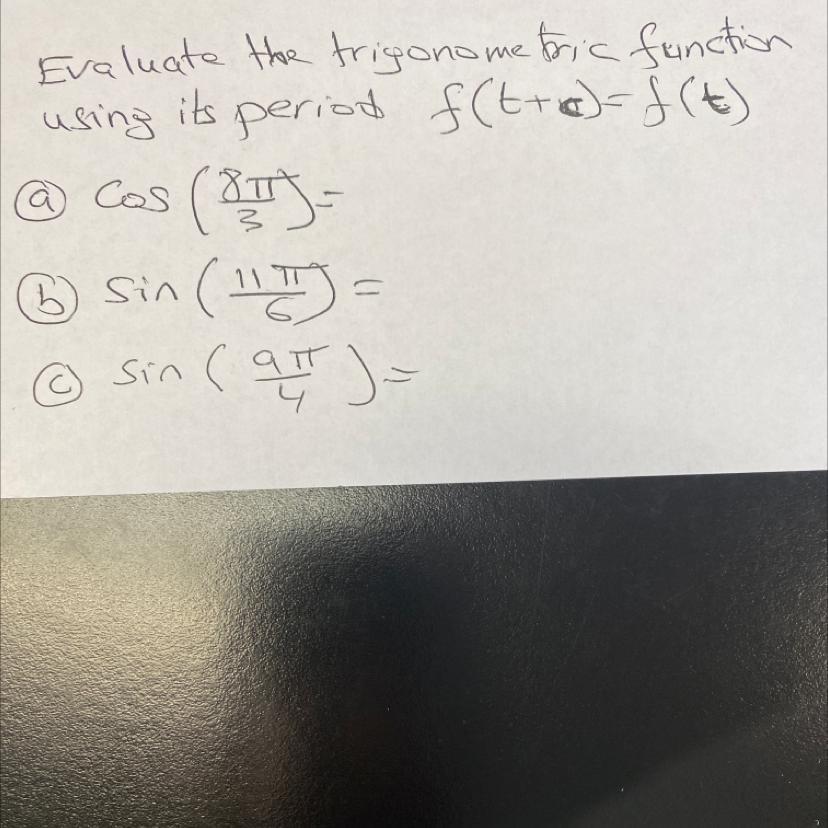 Evaluate the trigonometric function
using its period f(t+c)=f(t)
ⓐ cos (8π/3)=
ⓑ sin (11π/6) =
ⓒ sin (9π/4)=